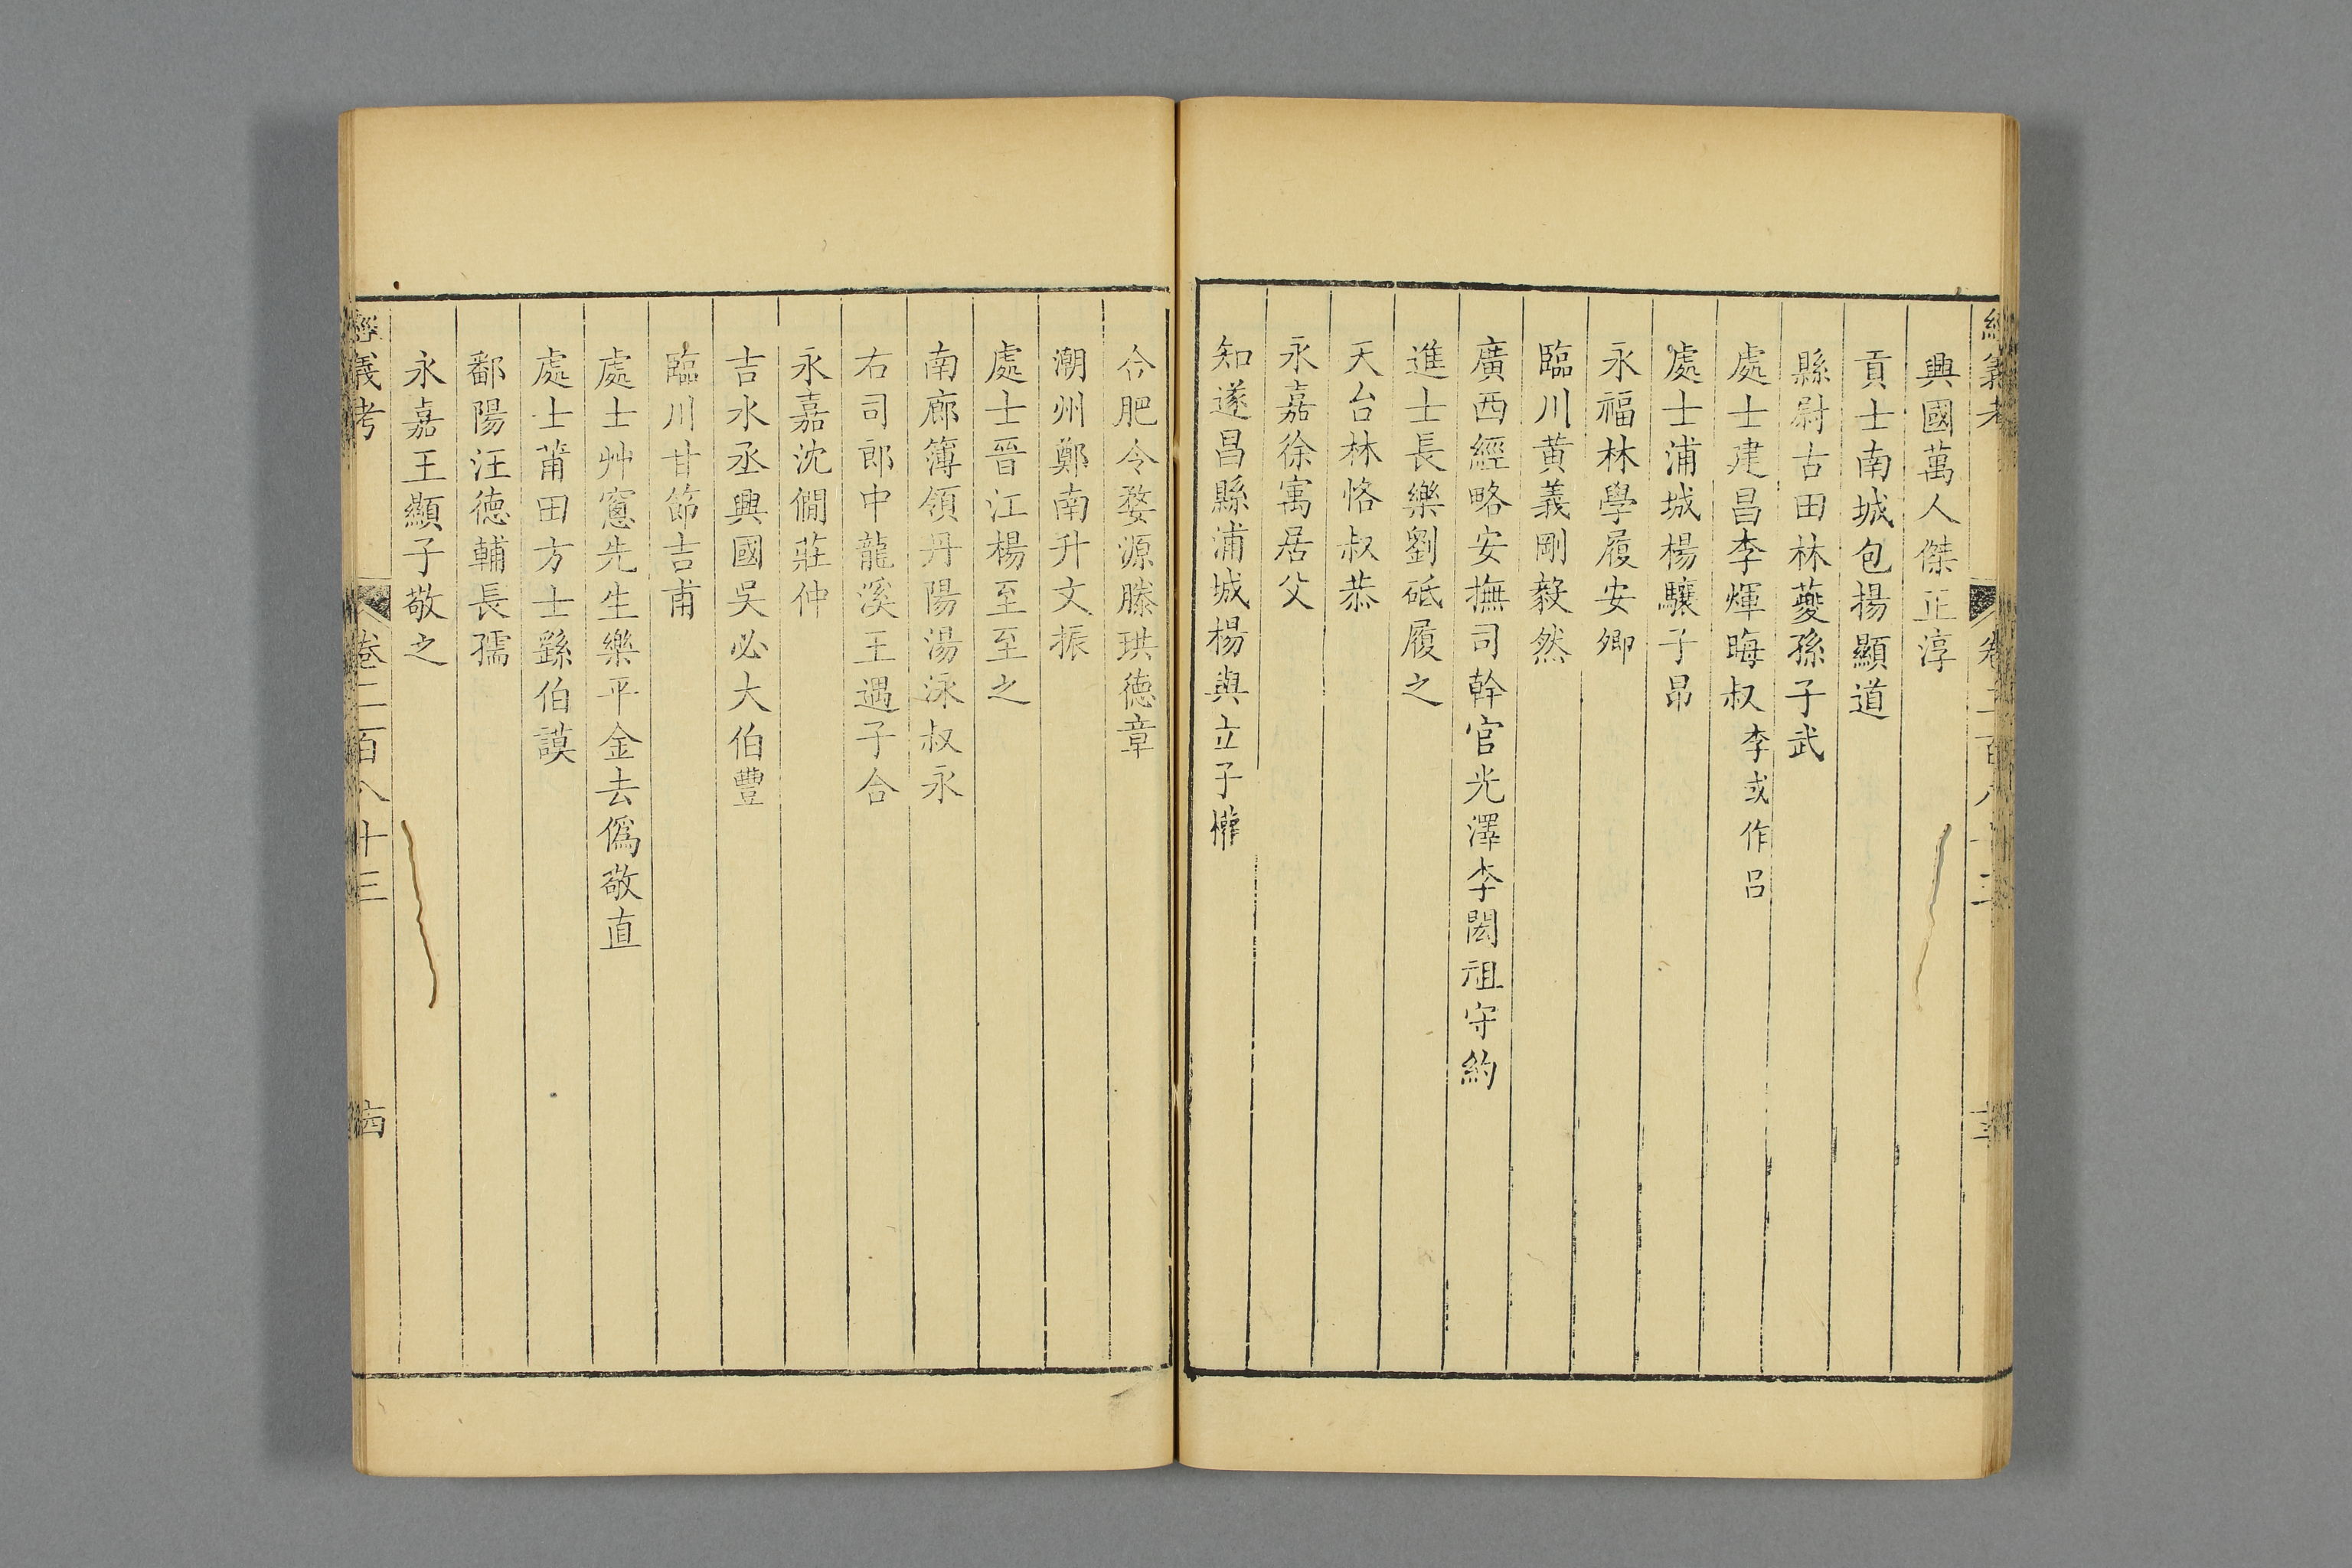 經義考 卷二百八十三 十三
興國萬人傑正淳
貢士南城包揚顯道
縣尉古田林夔孫子武
處士建昌李煇晦叔李或作吕
處士浦城楊驤子昂
永福林學履安卿
臨川黄義剛毅然
廣西經略安撫司幹官光澤李閎祖守約
進士長樂劉砥履之
天台林恪叔恭
永嘉徐寓居父
知遂昌縣浦城楊與立子權
合肥令婺源滕珙德章
潮州鄭南升文振
處士晉江楊至至之
南廊簿領丹陽湯泳叔永
右司郎中龍溪王遇子合
永嘉沈僩莊仲
吉水丞興國吳必大伯豐
臨川甘節吉甫
處士艸窻先生樂平金去僞敬直
處士莆田方士繇伯謨
鄱陽汪德輔長孺
永嘉王顯子敬之
經義考 卷二百八十三 十四